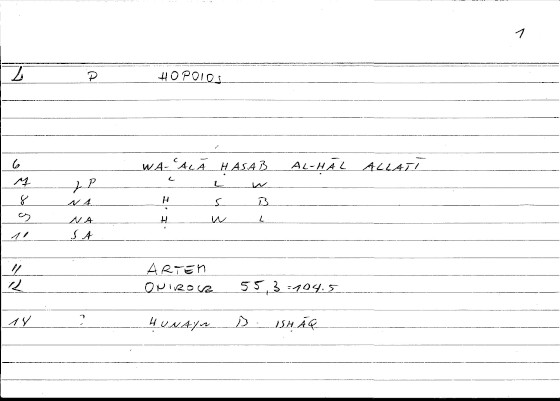 1
1 P HOPOIOS
6 WA-ʿALĀ ḤASAB AL-ḤĀL ALLATĪ
7 JP ʿ L W
8 NA Ḥ S B
9 NA Ḥ W L
10 SA
11 ARTEM
12 ONIROCR 55,3=104.5
14 ? ḤUNAYN B. ISḤĀQ